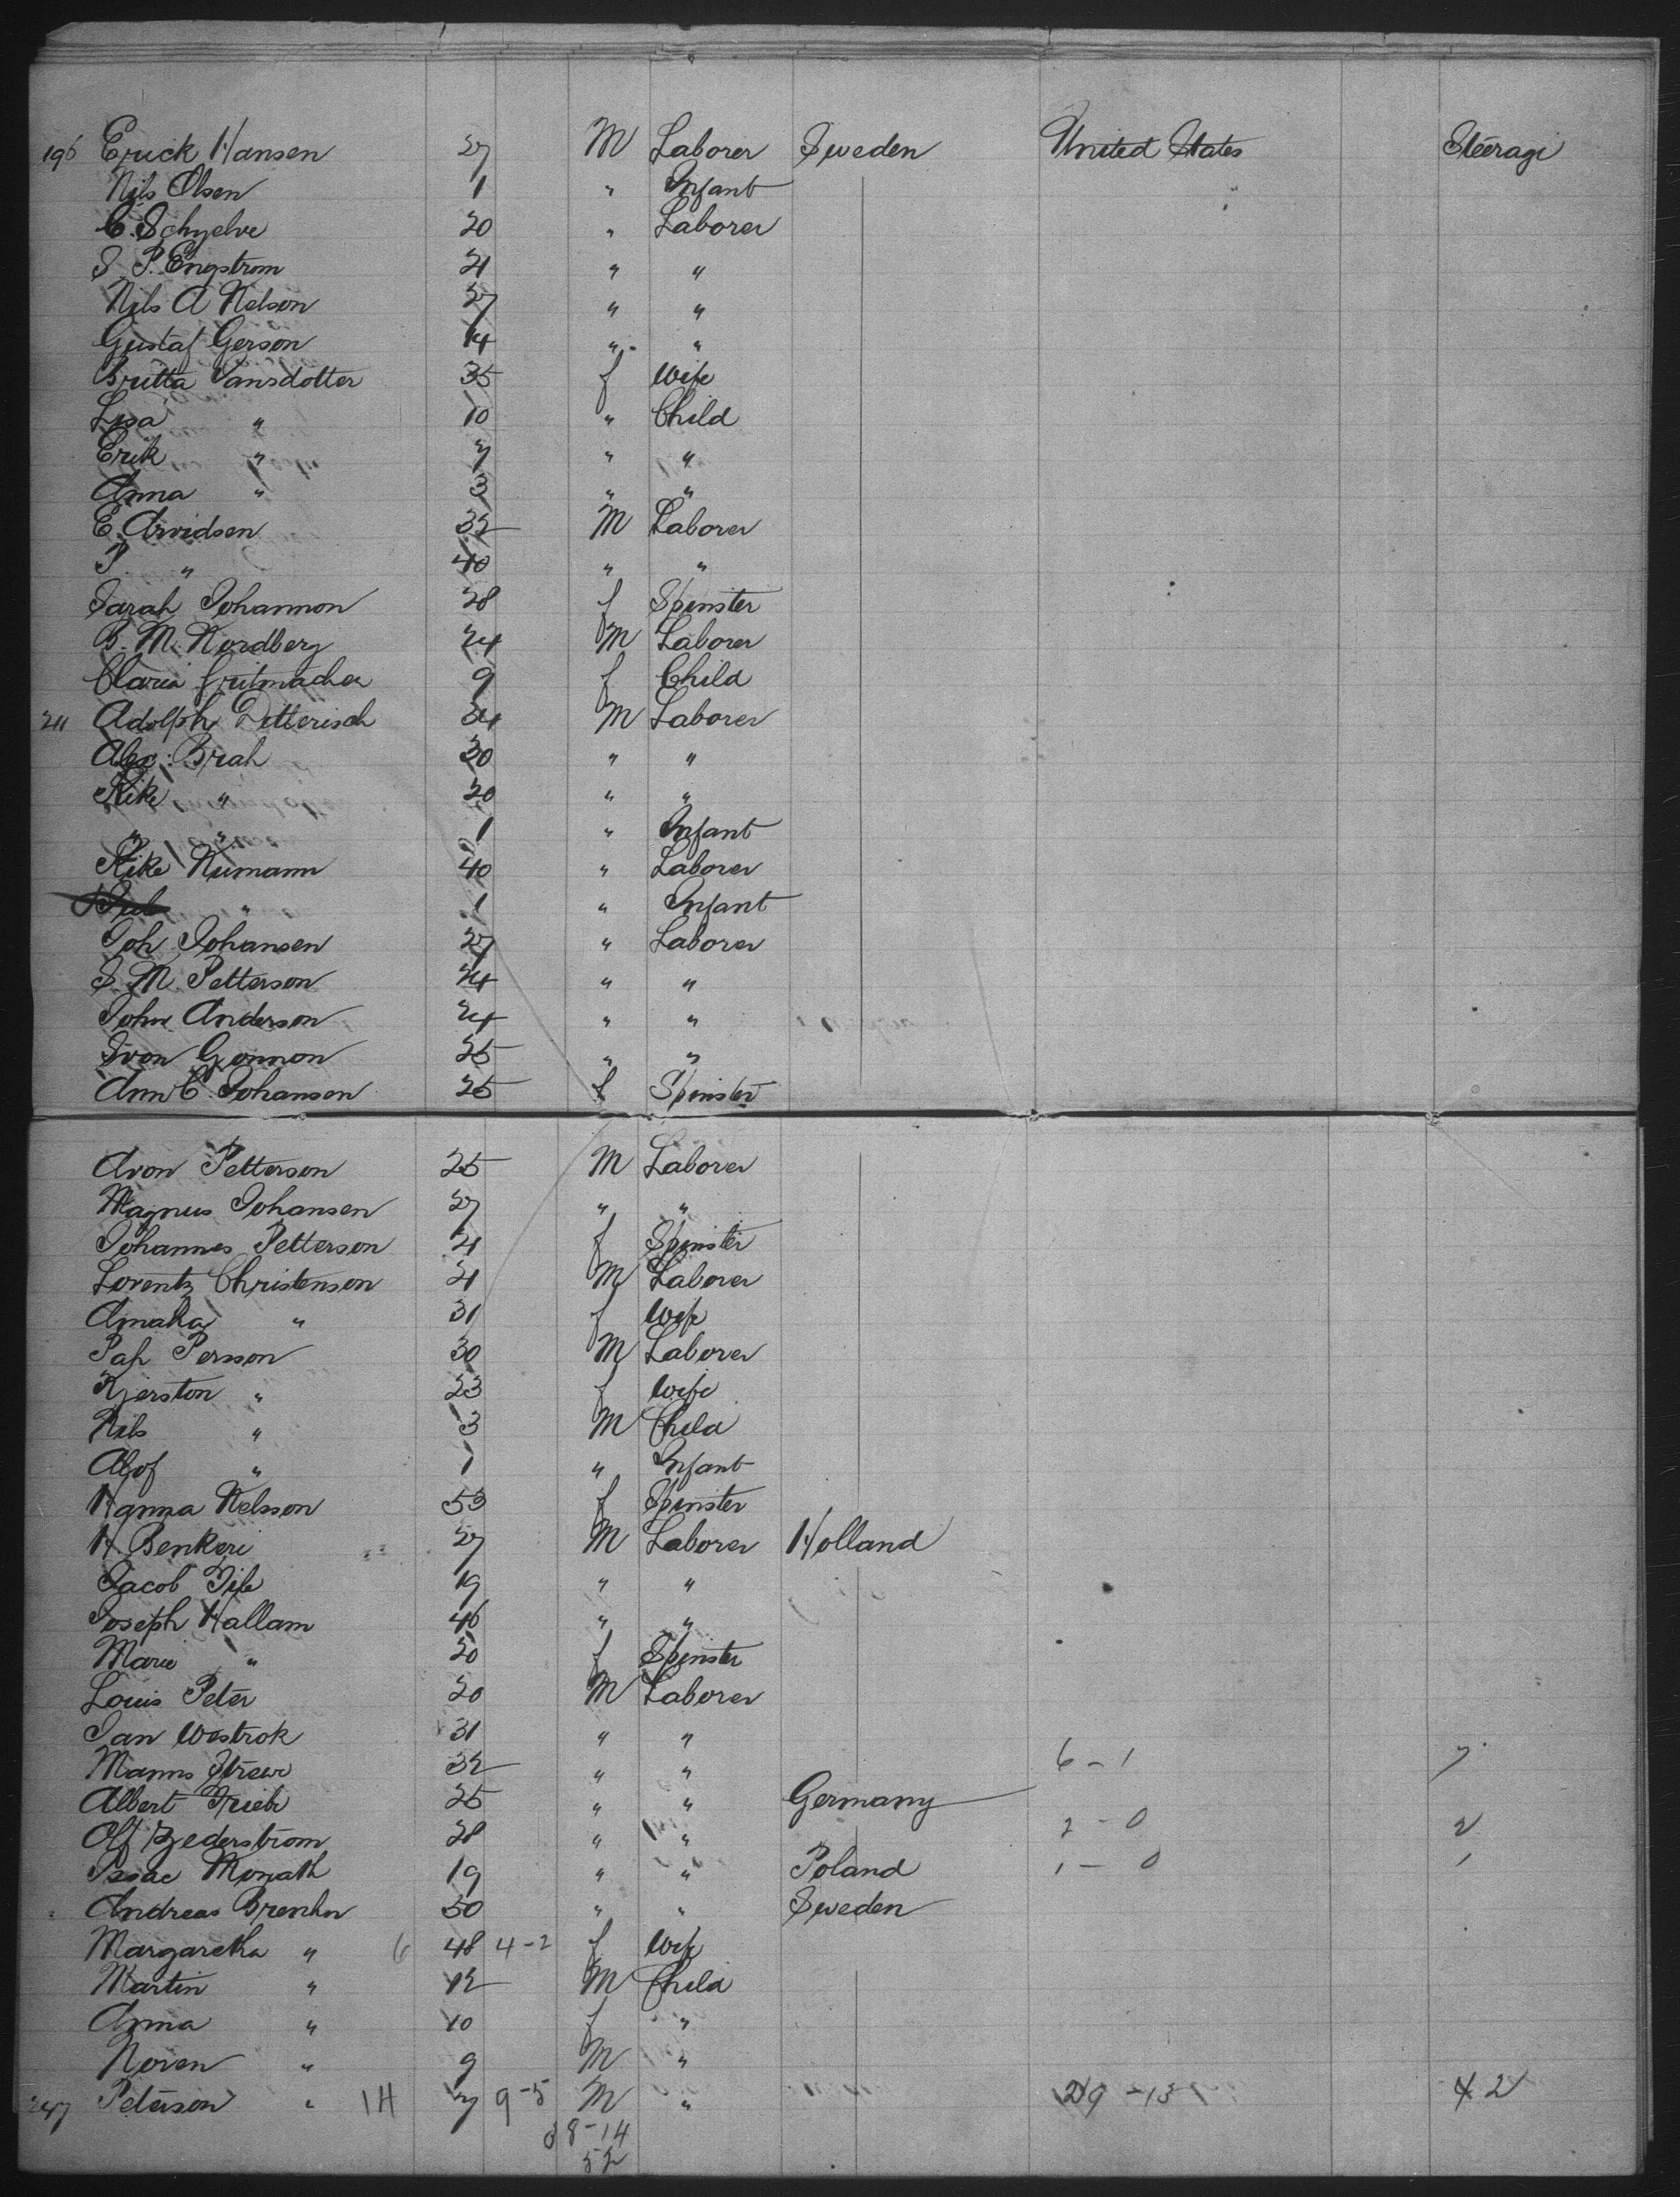 196 Erick Hansen 27 M Laborer Sweden United States Steerage
Nils Olsen 1 " Infant
C. Schyelve 20 " Laborer
S. P. Engstrom 21 " "
Nils A Nelson 27 " "
Gustaf Gerson 14 " "
Britta Jansdotter 35 f Wife
Lisa " 10 " Child
Erik " 7 " "
Anna " 3 " "
E. Arvidsen 32 M Laborer
P. " 40 " "
Sarah Johannon 28 f Spinster
B. M. Nordberg 24 M Laborer
Claria 9 f Child
211 Adolph Ditterisch 24 M Laborer
Alex. Brah 30 " "
Rike " 20 " "
" " 1 " Infant
Rike Numann 40 " Laborer
" 1 " Infant
Joh Johansen 27 " Laborer
S. M Petterson 24 " "
John Anderson 24 " "
Svon Gonnon 25 " "
Ann C. Johansen 25 f Spinster
Avon Petterson 25 M Laborer
Magnus Johansen 27 " "
Johannes Petterson 21 f Spinster
Lorentz Christenson 21 M Laborer
Amaka " 31 f Wife
Pah Persson 30 M Laborer
Kjerston " 23 f Wife
Nils " 3 M Child
Alof " 1 " Infant
Hanna Nelsson 53 f Spinster
H Benkeri 27 M Laborer Holland
Jacob 19 " "
Joseph Hallam 46 " "
Marie " 20 f Spinster
Louis Peter 20 M Laborer
Jan Wostrok 31 " "
Manns 32 " " 6 - 1 7
Albert 25 " " Germany
Alf Zederstrom 28 " " 2 - 0 2
Isaac Monath 19 " " Poland 1 - 0 1
Andreas Brenhn 50 " " Sweden
Margaretha " 6 48 4-2 f Wife
Martin " 12 M Child
Anna " 10 f "
Noren " 9 M "
247 Peterson " 14 7 9-5 M " 29 - 13 42
38-14
52